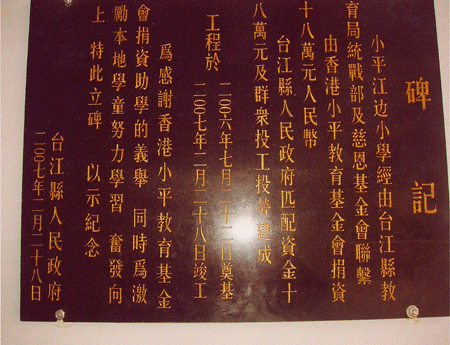 碑記
小平江边小學經由台江縣教
育局統戰部及慈恩基金會聯繫
由香港小平教育基金會捐資
十八萬元人民幣
台江縣人民政府匹配資金十
八萬元及群衆投工投勞建成
工程於
二00六年七月二十二日奠基
二00七年二月二十八日竣工
爲感謝香港小平教育基金
會捐資助學的義舉 同時爲激
勵本地學童努力學習 奮發向
上 特此立碑 以示紀念
台江縣人民政府
二00七年二月二十八日